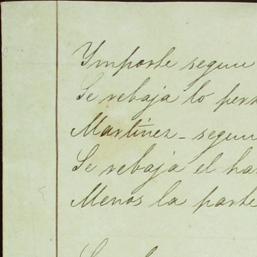 Ymporte segun
Se rebaja lo
Martinez - segun
Se rebaja el
Menos la parte